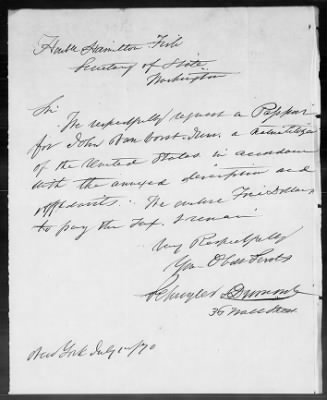 Honble Hamilton Fish
Secretary of State
Washington
Sir
We respectfully request a Passport
for John Van Vorst. Junr. a native citizen
of the United States in accordance
with the annexed description and
affidavits. We enclose Five Dollars
to pay the tax. & remain
Very Respectfully
Your Obdt Servts
Schuyler
36 Wall Street
New York July